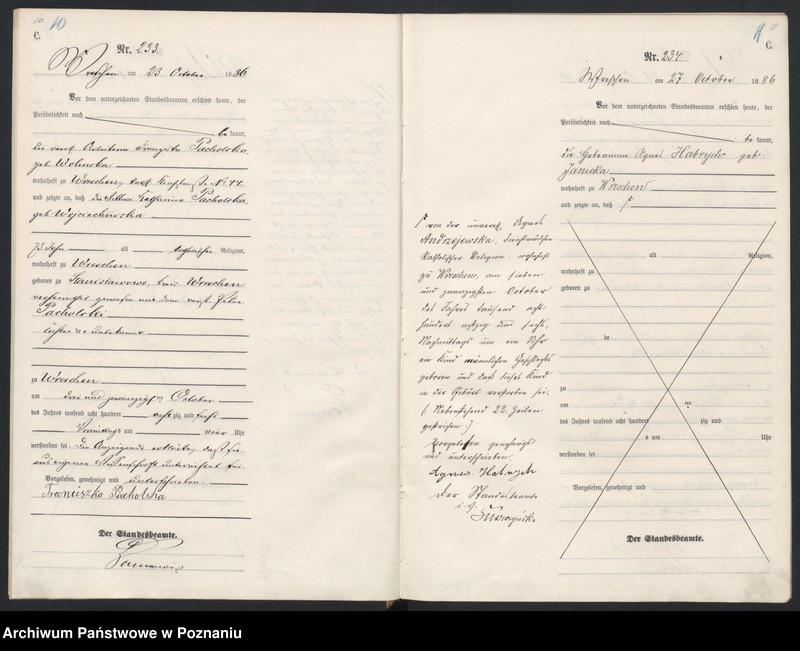 10. 10
C.
Nr. 233
Wreschen am 23 October 1886
Vor dem unterzeichneten Standesbeamten erschien heute, der
Persönlichkeit nach
be kannt,
die verw. Arbeiterin Franziska Pacholska,
geb Wolinska
wohnhaft zu Wreschen, Nr 44
und zeigte an, daß die Wittwe Katharina Pacholska
geb Wojciechowska
73 Jahr alt katholischer Religion,
wohnhaft zu Wreschen
geboren zu Stanislawowo, Kreis Wreschen
verheirathet gewesen mit dem verst. Peter
Pacholski
unbekannt
zu Wreschen
am drei und zwanzigsten October
des Jahres tausend acht hundert achtzig und sechs
Vormittags um vier Uhr
verstorben sei. Die Anzeigende erklärte, daß sie
aus eigener Wissenschaft unterrichtet sei.
Vorgelesen, genehmigt und unterschrieben.
Franciszka Pacholska
Der Standesbeamte.
11 11
C.
Nr. 234
Wreschen am 27 October 1886
Vor dem unterzeichneten Standesbeamten erschien heute, der
Persönlichkeit nach
be kannt,
die Hebeamme Agnes Habrych geb.
Janecka
wohnhaft zu Wreschen
und zeigte an, daß
von der unvereh. Agnes
Andrzejewska, Dienstmädchen
katholischer Religion, wohnhaft
zu Wreschen, am sieben
und zwanzigsten October
des Jahres tausend acht
hundert achtzig und sechs,
Nachmittags um ein Uhr
ein Kind männlichen Geschlechts
geboren und daß dieses Kind
in der Geburt verstorben sei.
(Nebenstehend 22. Zeilen
gestrichen.)
Vorgelesen genehmigt
und unterschrieben.
Agnes Habrych
Der Standesbeamte
alt Religion,
wohnhaft zu
geboren zu
de
zu
am ten
des Jahres tausend acht hundert zig und
s um Uhr
verstorben sei
Vorgelesen, genehmigt und
Der Standesbeamte.
Archiwum Państwowe w Poznaniu